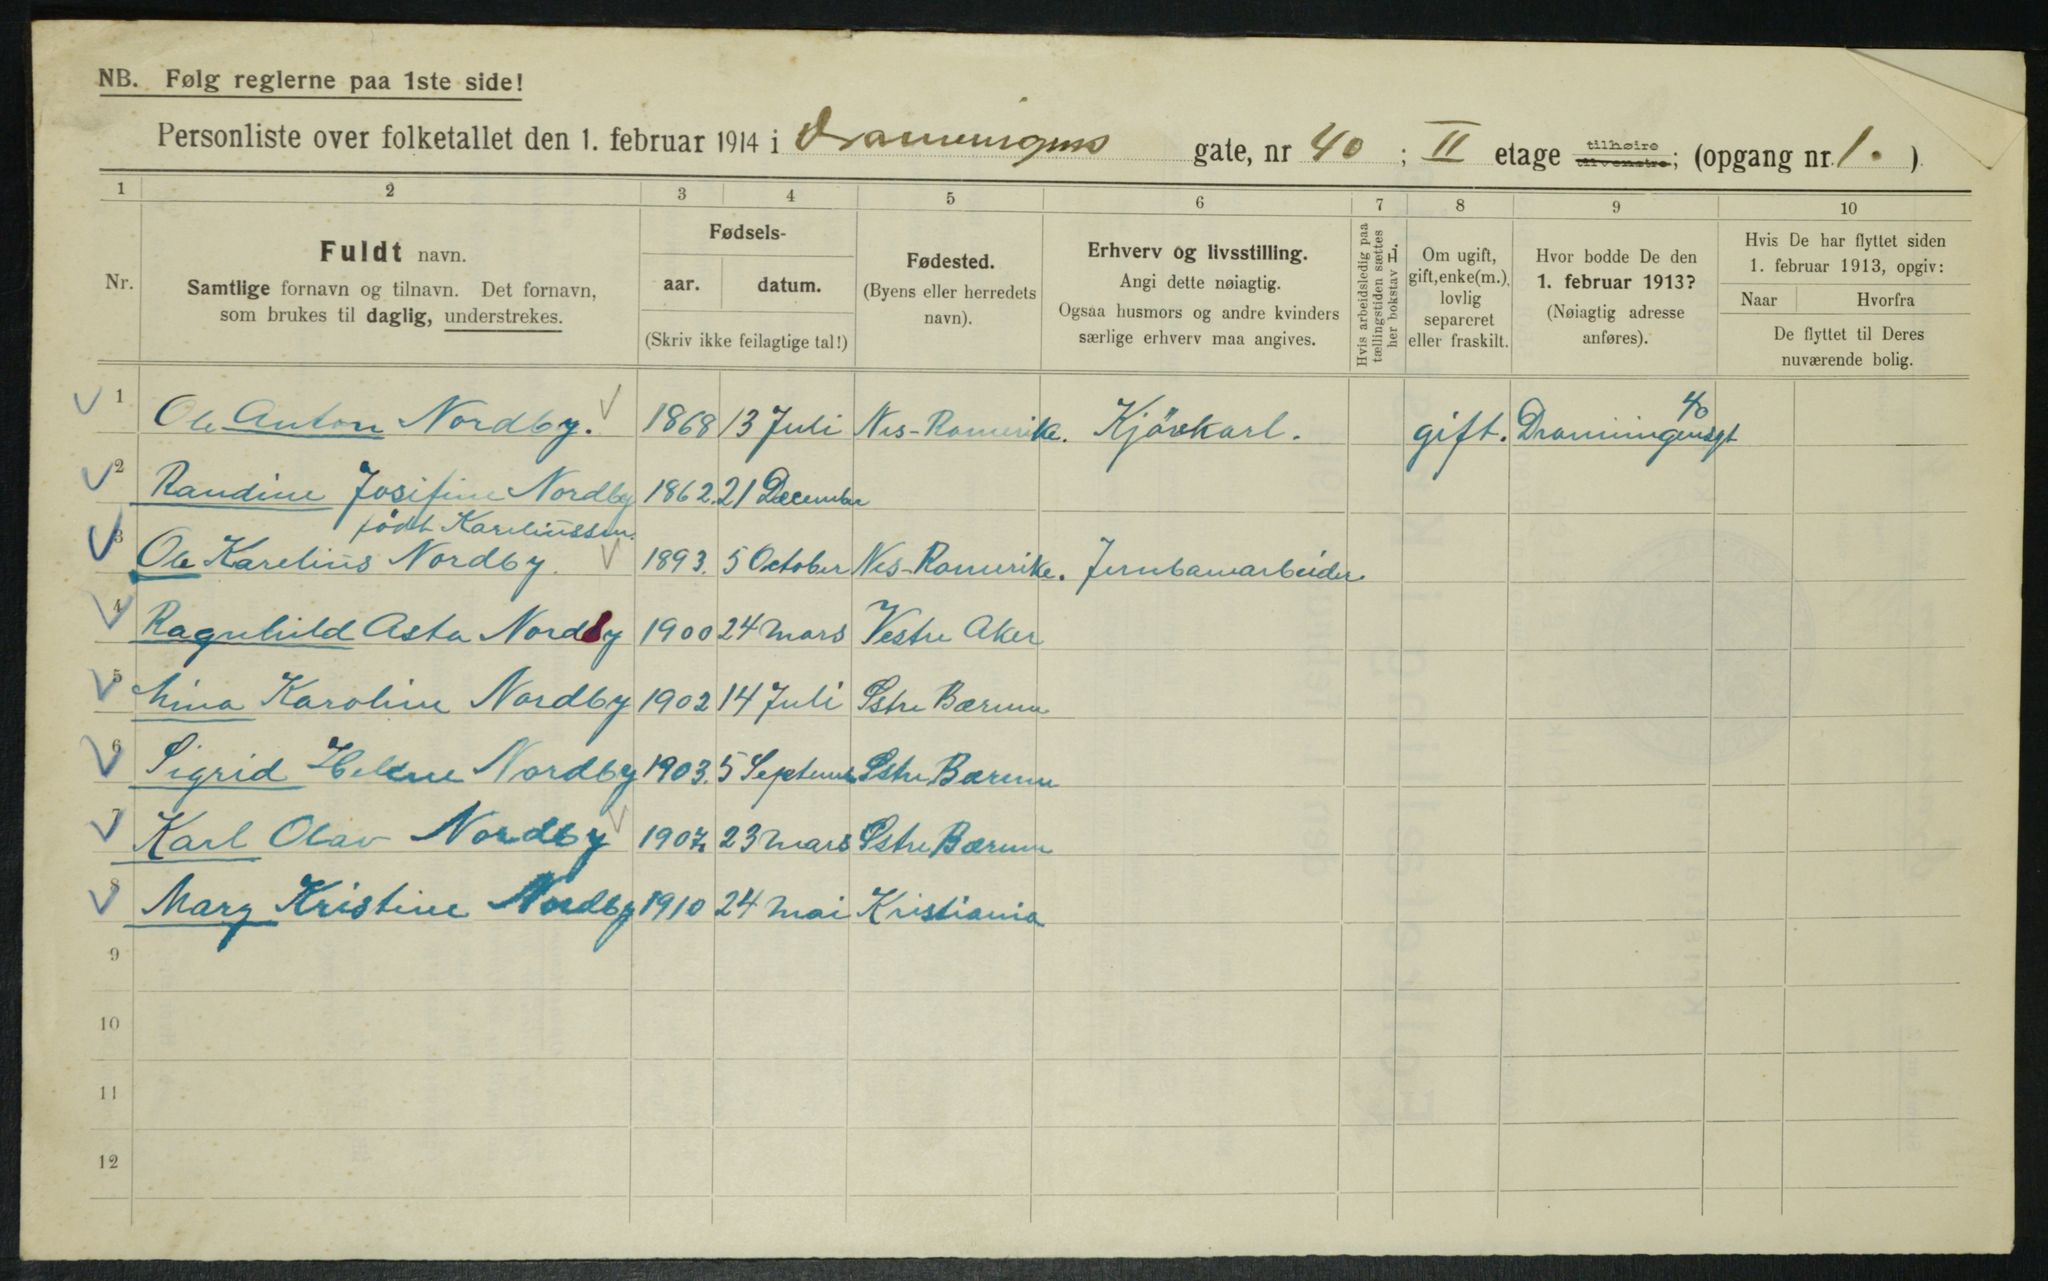 NB. Følg reglerne paa 1ste side!
Personliste over folketallet den 1. februar 1914 i Dronningens gate, nr 40 ; II etage tilhøire tilvenstre; (opgang nr. 1. )
1 2 3 4 5 6 7 8 9 10
Nr.
Fuldt navn.
Samtlige fornavn og tilnavn. Det fornavn,
som brukes til daglig, understrekes.
Fødsels-
aar. datum.
(Skriv ikke feilagtige tal!)
Fødested.
(Byens eller herredets
navn).
Erhverv og livsstilling.
Angi dette nøiagtig.
Ogsaa husmors og andre kvinders
særlige erhverv maa angives.
Hvis arbeidsledig paa
tællingstiden sættes
her bokstav L.
Om ugift,
gift, enke(m.),
lovlig
separeret
eller fraskilt.
Hvor bodde De den
1. februar 1913?
(Nøiagtig adresse
anføres).
Hvis De har flyttet siden
1. februar 1913, opgiv:
Naar Hvorfra
De flyttet til Deres
nuværende bolig.
1 Ole Anton Nordby. 1868 13 Juli Nes-Romerike. Kjørekarl. gift. Dronningensgt 40
2 Randine Josifine Nordby 1862. 21 December
født Kareliussen.
3 Ole Karelius Nordby. 1893. 5 October Nes-Romerike. Jernbanearbeider
4 Ragnhild Asta Nordby 1900 24 Mars Vestre Aker
5 Mina Karoline Nordby 1902 14 Juli Østre Bærum
6 Sigrid Helene Nordby 1903. 5 Septemb Østre Bærum
7 Karl Olav Nordby 1907. 23 Mars Østre Bærum
8 Mary Kristine Nordby 1910 24 Mai Kristiania
9
10
11
12